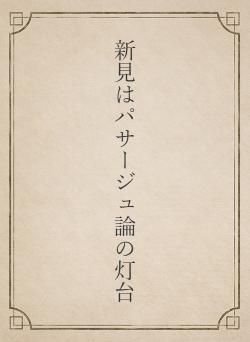 新見はパサージュ論の灯台